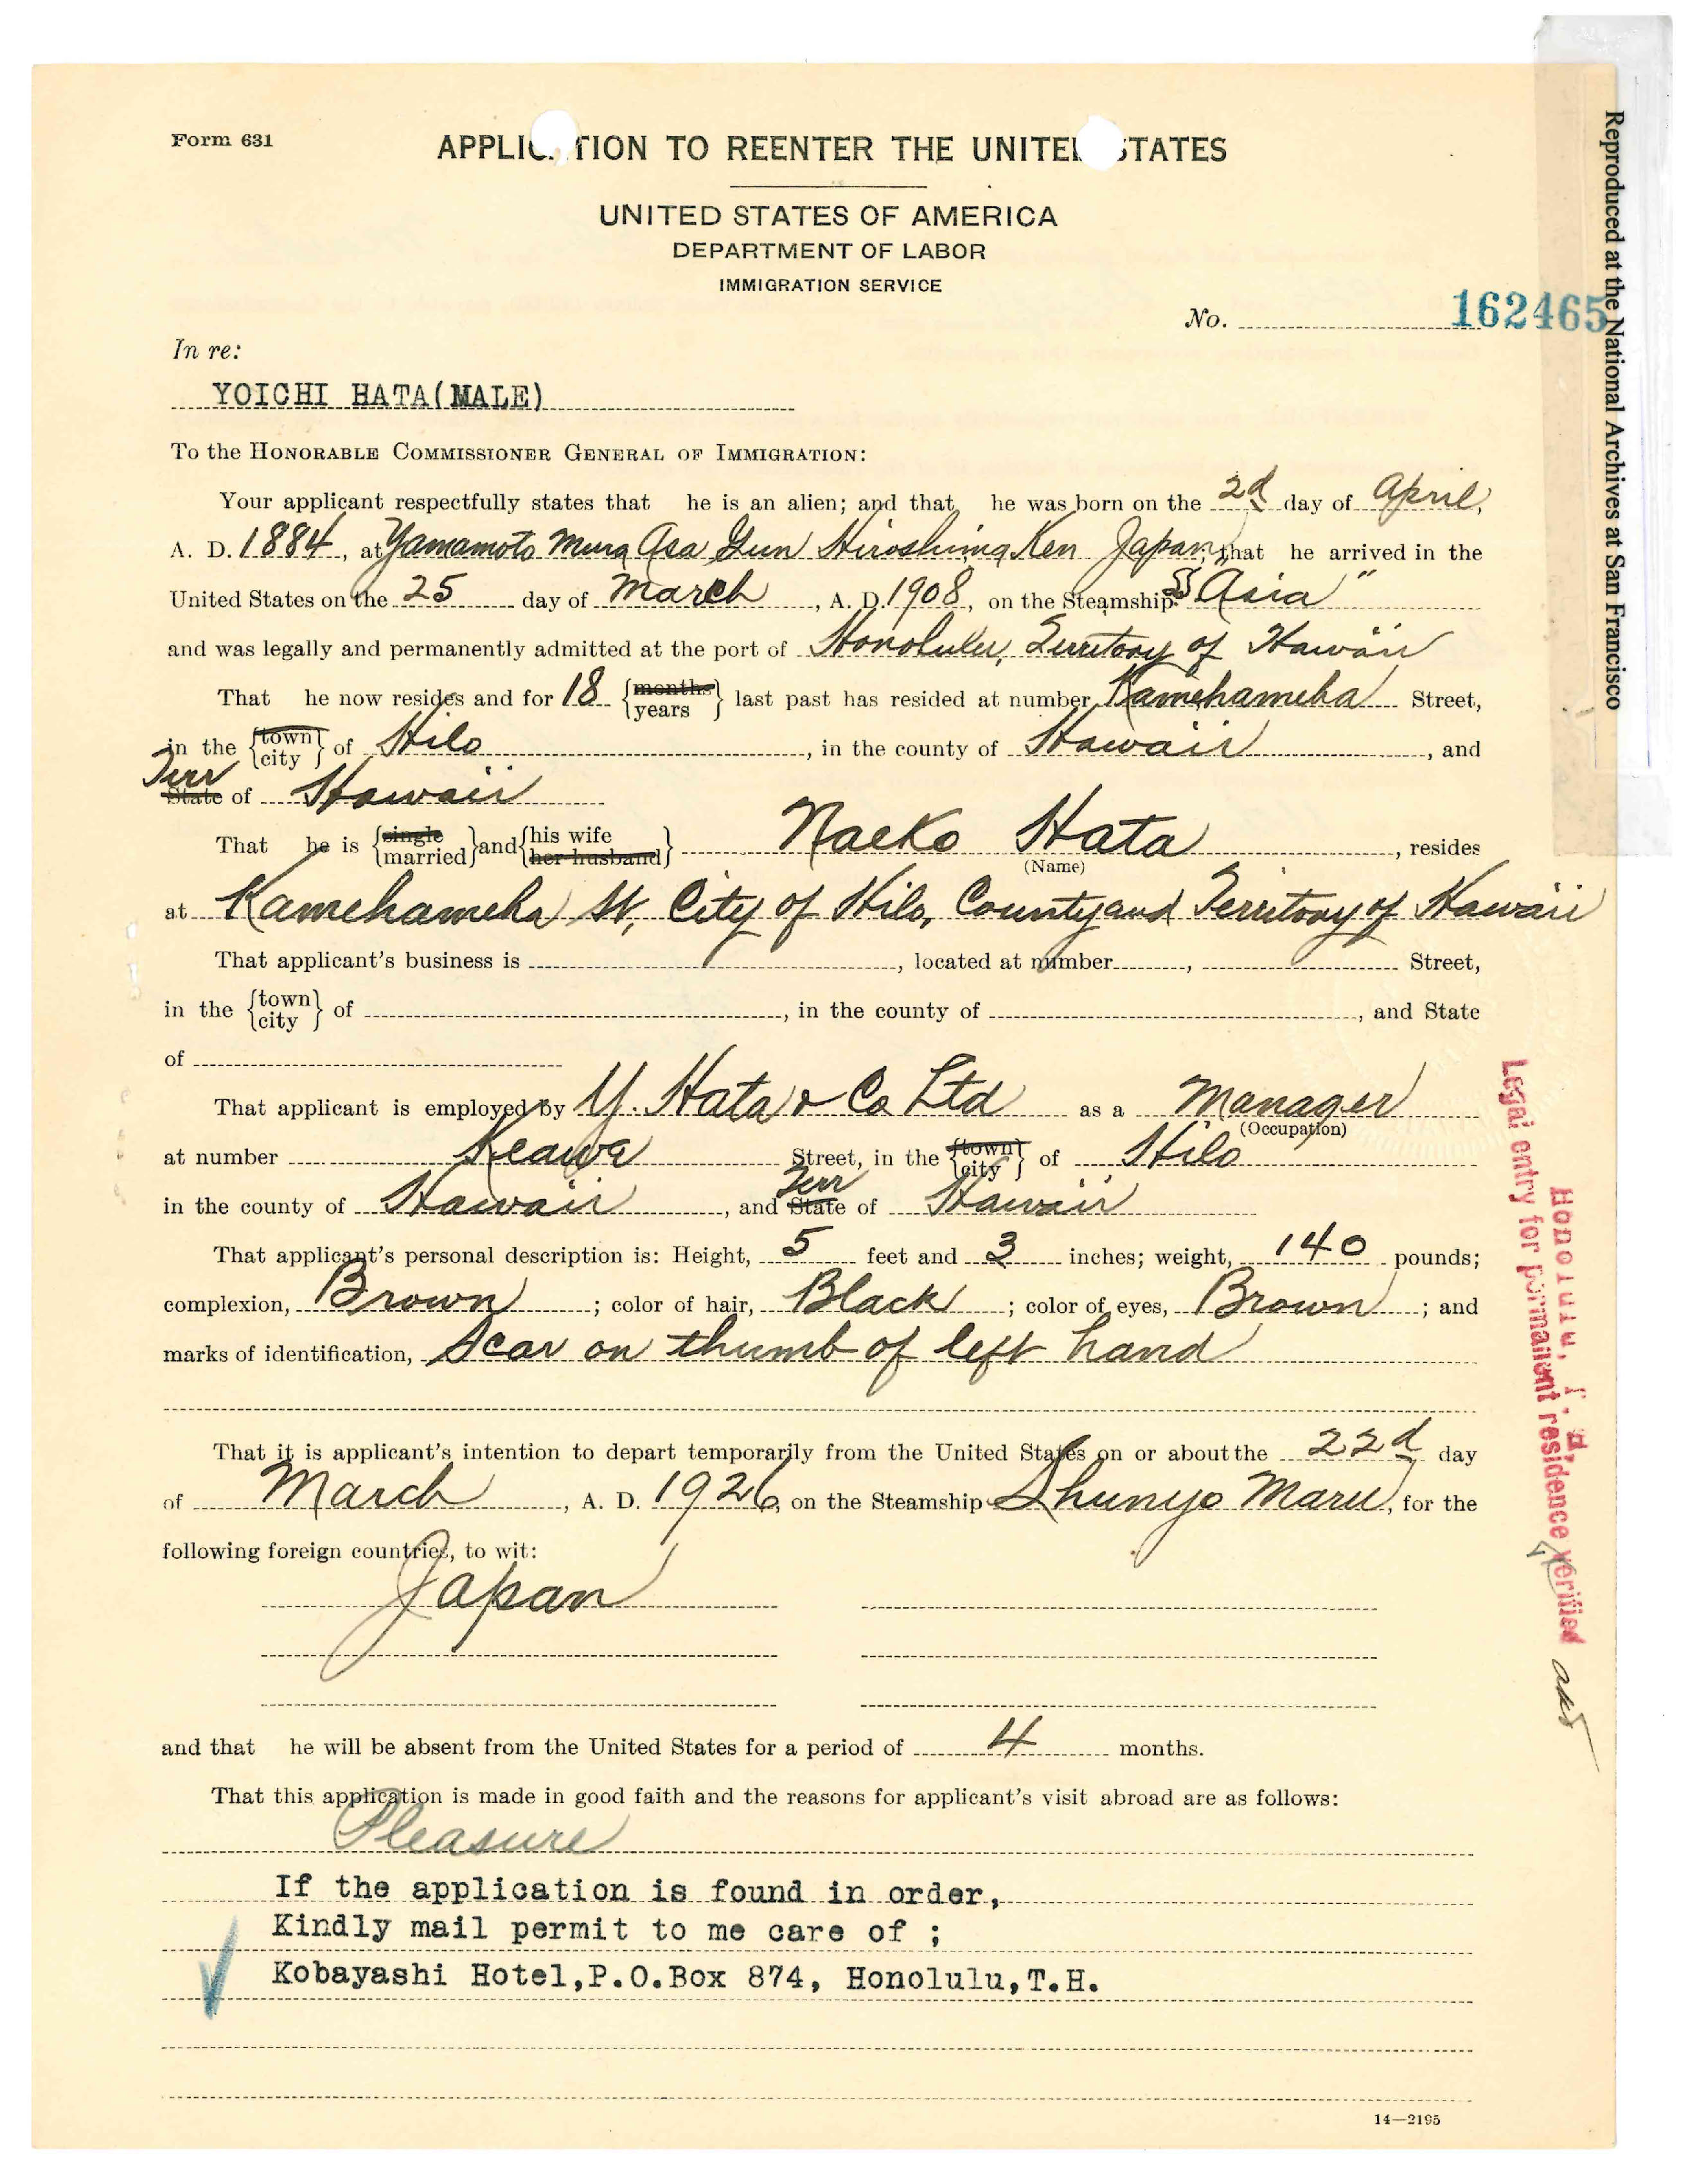 Form 631
APPLIC TION TO REENTER THE UNITE STATES
UNITED STATES OF AMERICA
DEPARTMENT OF LABOR
IMMIGRATION SERVICE
No. 162465
In re:
YOICHI HATA(MALE)
To the HONORABLE COMMISSIONER GENERAL OF IMMIGRATION:
Your applicant respectfully states that he is an alien; and that he was born on the 2d day of April,
A. D. 1884, at Yamamoto Mura Asa Gun Hiroshima Ken Japan; that he arrived in the
United States on the 25 day of March, A. D. 1908, on the Steamship SS "Asia"
and was legally and permanently admitted at the port of Honolulu, Territory of Hawaii
That he now resides and for 18 {months years} last past has resided at number Kamehameha Street,
in the {town city} of Hilo, in the county of Hawaii, and
Terr
State of Hawaii
That he is {single married} and {his wife her husband} Naeko Hata, resides
(Name)
at Kamehameha St, City of Hilo, County and Territory of Hawaii
That applicant's business is , located at number , Street,
in the {town city} of , in the county of , and State
of
That applicant is employed by Y. Hata & Co Ltd as a Manager
(Occupation)
at number Keawe Street, in the {town city} of Hilo
in the county of Hawaii, and Terr State of Hawaii
That applicant's personal description is: Height, 5 feet and 3 inches; weight, 140 pounds;
complexion, Brown; color of hair, Black; color of eyes, Brown; and
marks of identification, Scar on thumb of left hand
That it is applicant's intention to depart temporarily from the United States on or about the 22d day
of March, A. D. 1926, on the Steamship Shunyo Maru, for the
following foreign countries, to wit:
Japan
and that he will be absent from the United States for a period of 4 months.
That this application is made in good faith and the reasons for applicant's visit abroad are as follows:
Pleasure
If the application is found in order,
Kindly mail permit to me care of ;
Kobayashi Hotel,P.O.Box 874, Honolulu,T.H.
14—2195
Reproduced at the National Archives at San Francisco
Honolulu, T. H.
Legal entry for permanent residence verified